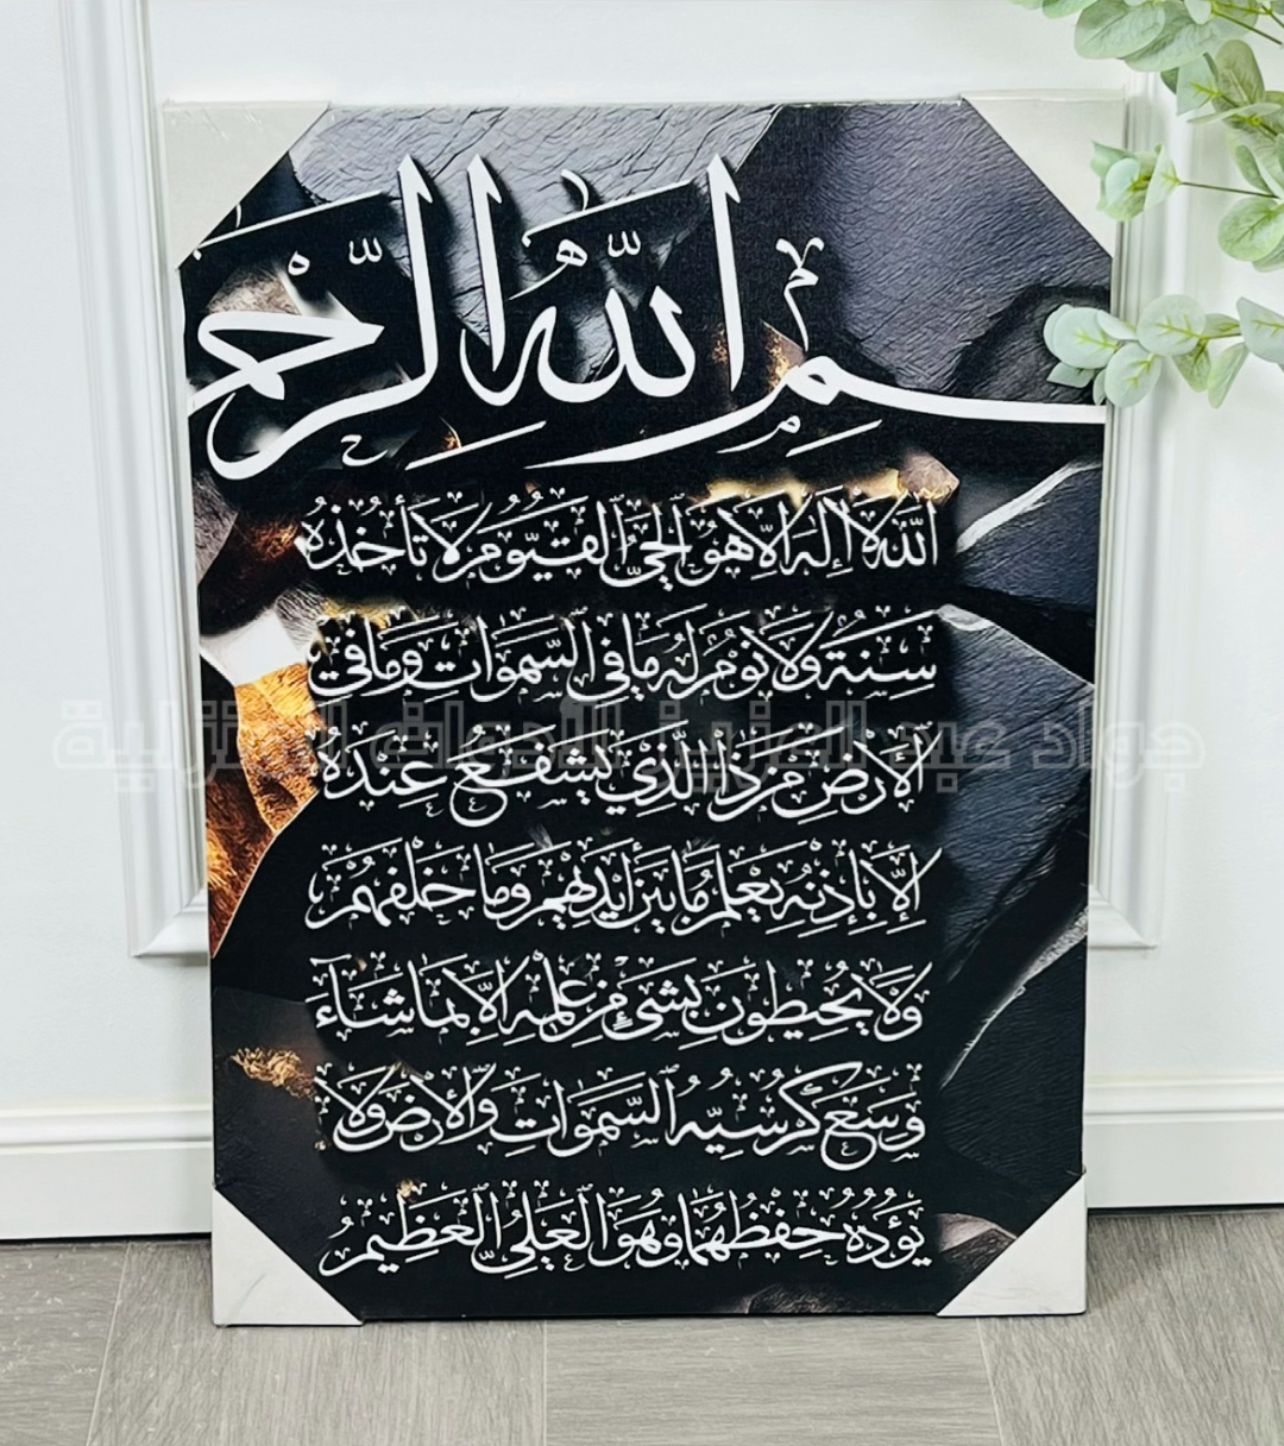 ـم الله الرحمـ
الله لا إله إلا هو الحي القيوم لا تأخذه
سنة ولا نوم له ما في السموات وما في
الأرض من ذا الذي يشفع عنده
إلا بإذنه يعلم ما بين أيديهم وما خلفهم
ولا يحيطون بشيء من علمه إلا بما شاء
وسع كرسيه السموات والأرض ولا
يؤده حفظهما وهو العلي العظيم
جواد عبد العزيز للأدوات المنزلية